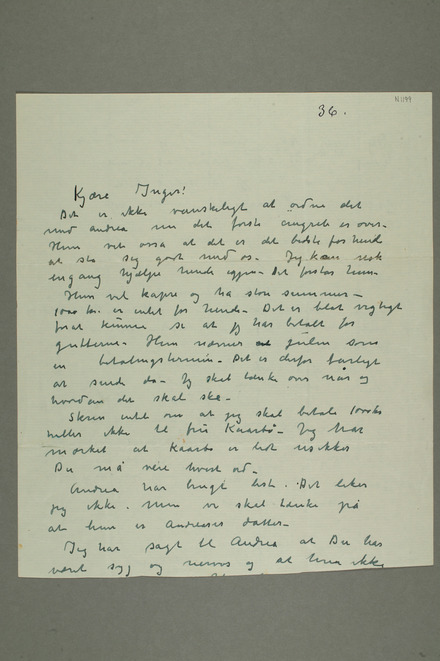 N 1199
36.
Kjære Inger!
Det er ikke vanskeligt at ordne det
med Andrea nu det første er over.
Hun vet ossa at det er det bedste for hende
at stå sig godt med os. Jeg kan nok
engang hjelpe hende igjen. Det forstår hun.
Hun vil kapre og ha store summer.
1000 kr. er intet for hende. Det er blot vigtigt
for at kunne se at jeg har betalt for
guttene. Hun nævner julen som
en betalingstermin. Det er derfor farligt
at sende da. Jeg skal tænke over når og
hvordan det skal ske.
Skriv intet om at jeg skal betale 1000 kr
heller ikke til fru Kaarbø. Jeg har
mærket at Kaarbø er lidt usikker
Du må veie hvert ord.
Andrea har brugt list. Det liker
jeg ikke. Men vi skal tænke på
at hun er Andreases datter.
Jeg har sagt til Andrea at Du har
været syg og nervøs og at hun ikke